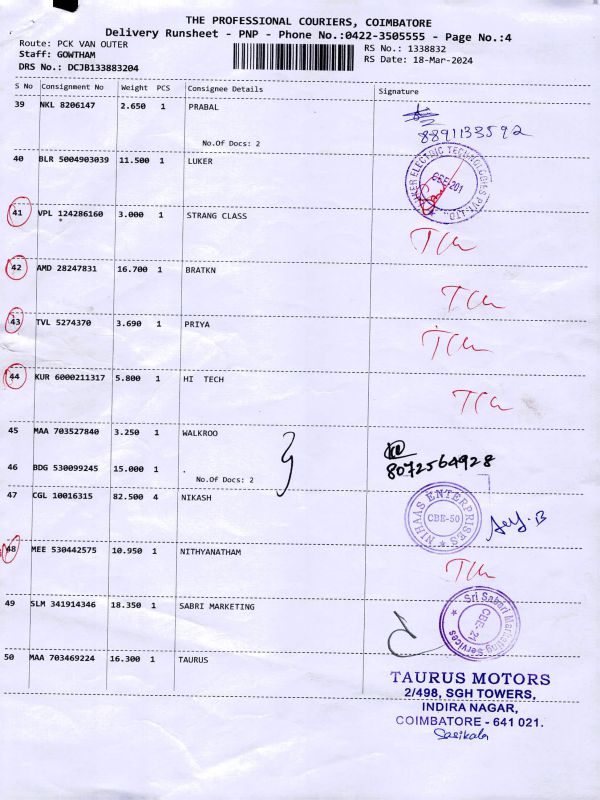 THE PROFESSIONAL COURIERS, COIMBATORE
Delivery Runsheet - PNP - Phone No.:0422-3505555 - Page No.:4
Route: PCK VAN OUTER
RS No.: 1338832
Staff: GOWTHAM
RS Date: 18-Mar-2024
DRS No.: DCJB133883204
S No Consignment No Weight PCS Consignee Details Signature
39 NKL 8206147 2.650 1 PRABAL
8891133592
No.Of Docs: 2
40 BLR 5004903039 11.500 1 LUKER
LUKER ELECTRIC TECHNOLOGIES PVT. LTD.
CBE-201
41 VPL 124286160 3.000 1 STRANG CLASS
42 AMD 28247831 16.700 1 BRATKN
43 TVL 5274370 3.690 1 PRIYA
44 KUR 6000211317 5.800 1 HI TECH
45 MAA 703527840 3.250 1 WALKROO
8072564928
46 BDG 530099245 15.000 1 .
No.Of Docs: 2
47 CGL 10016315 82.500 4 NIKASH
NIHAAS ENTERPRISES
CBE-50
48 MEE 530442575 10.950 1 NITHYANATHAM
49 SLM 341914346 18.350 1 SABRI MARKETING
Sri Sabari Marketing Services
CBE-21
50 MAA 703469224 16.300 1 TAURUS
TAURUS MOTORS
2/498, SGH TOWERS,
INDIRA NAGAR,
COIMBATORE - 641 021.
Sasikala